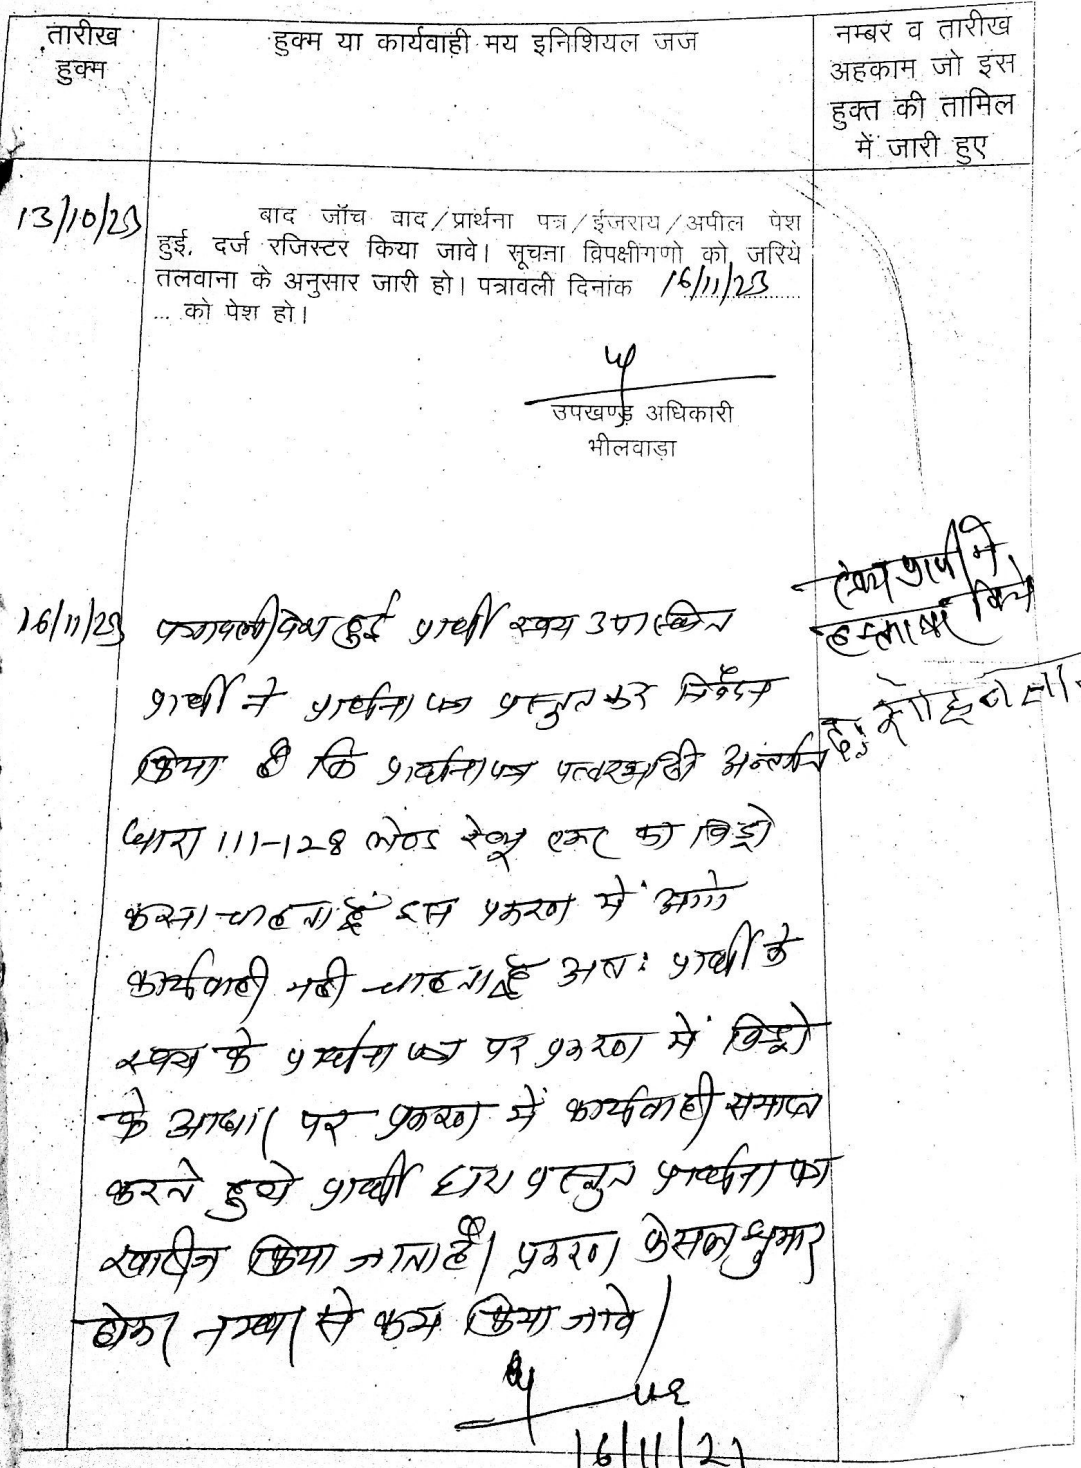 तारीख
हुक्म
हुक्म या कार्यवाही मय इनिशियल जज
नम्बर व तारीख
अहकाम जो इस
हुक्त की तामिल
में जारी हुए
13/10/23
बाद जॉच वाद/प्रार्थना पत्र/ईजराय/अपील पेश
हुई, दर्ज रजिस्टर किया जावे। सूचना विपक्षीगणो को जरिये
तलवाना के अनुसार जारी हो। पत्रावली दिनांक 16/11/23
... को पेश हो।
उपखण्ड़ अधिकारी
भीलवाड़ा
16/11/23
पत्रावली पेश हुई प्रार्थी स्वयं उपस्थित
प्रार्थी ने प्रार्थना पत्र प्रस्तुत कर निवेदन
किया है कि प्रार्थना पत्र पत्थरगढी अन्तर्गत
धारा 111-128 लेण्ड रेव्यु एक्ट का विड्रो
करना चाहता हूँ इस प्रकरण में आगे
कार्यवाही नही चाहता हूँ अतः प्रार्थी के
स्वयं के प्रार्थना पत्र पर प्रकरण में विड्रो
के आधार पर प्रकरण में कार्यवाही समाप्त
करते हुये प्रार्थी द्वारा प्रस्तुत प्रार्थना पत्र
खारीज किया जाता है। प्रकरण फैसल शुमार
होकर नम्बर से कम किया जावे।
16/11/23
प्रार्थी ने
हस्ताक्षर किये